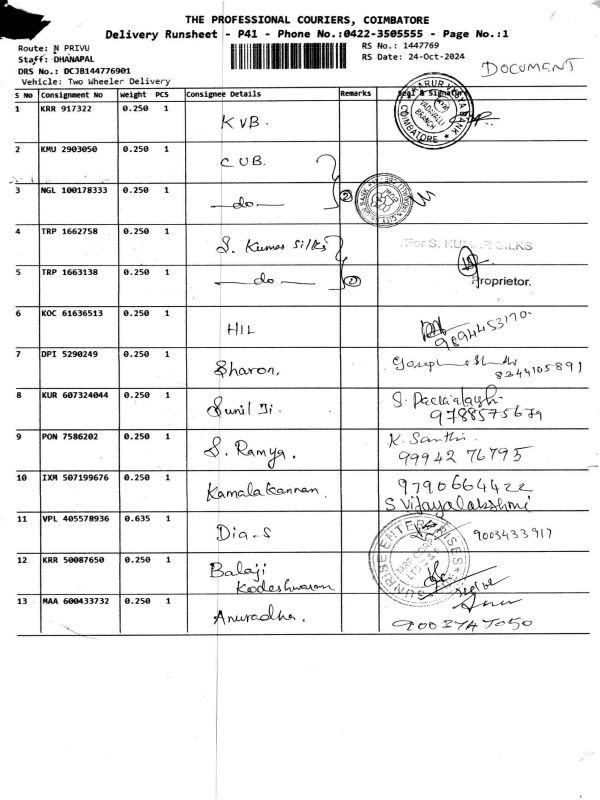 THE PROFESSIONAL COURIERS, COIMBATORE
Delivery Runsheet - P41 - Phone No.:0422-3505555 - Page No.:1
Route: N PRIVU
RS No.: 1447769
Staff: DHANAPAL
RS Date: 24-Oct-2024
DRS No.: DCJB144776901
DOCUMENT
Vehicle: Two Wheeler Delivery
S No Consignment No Weight PCS Consignee Details Remarks Seal & Signature
1 KRR 917322 0.250 1 KVB.
VADAVALLI BRANCH COIMBATORE
2 KMU 2903050 0.250 1 CUB.
3 NGL 100178333 0.250 1 —do— 2
4 TRP 1662758 0.250 1 S. Kumar Silks For S. KUMAR SILKS
5 TRP 1663138 0.250 1 —do— 2 Proprietor.
6 KOC 61636513 0.250 1 HIL 9894453170
7 DPI 5290249 0.250 1 Sharon. 8244105891
8 KUR 607324044 0.250 1 Sunil Ji. 9788575679
9 PON 7586202 0.250 1 S. Ramya. K. Santhi. 99942 76795
10 IXM 507199676 0.250 1 Kamalakannan. 9790664422
S Vijayalakshmi
11 VPL 405578936 0.635 1 Dia-S 9003433917
SUNRISE ENTERPRISES
12 KRR 50087650 0.250 1 Balaji
Kodeshwaran
13 MAA 600433732 0.250 1 Anuradha. 9003747050